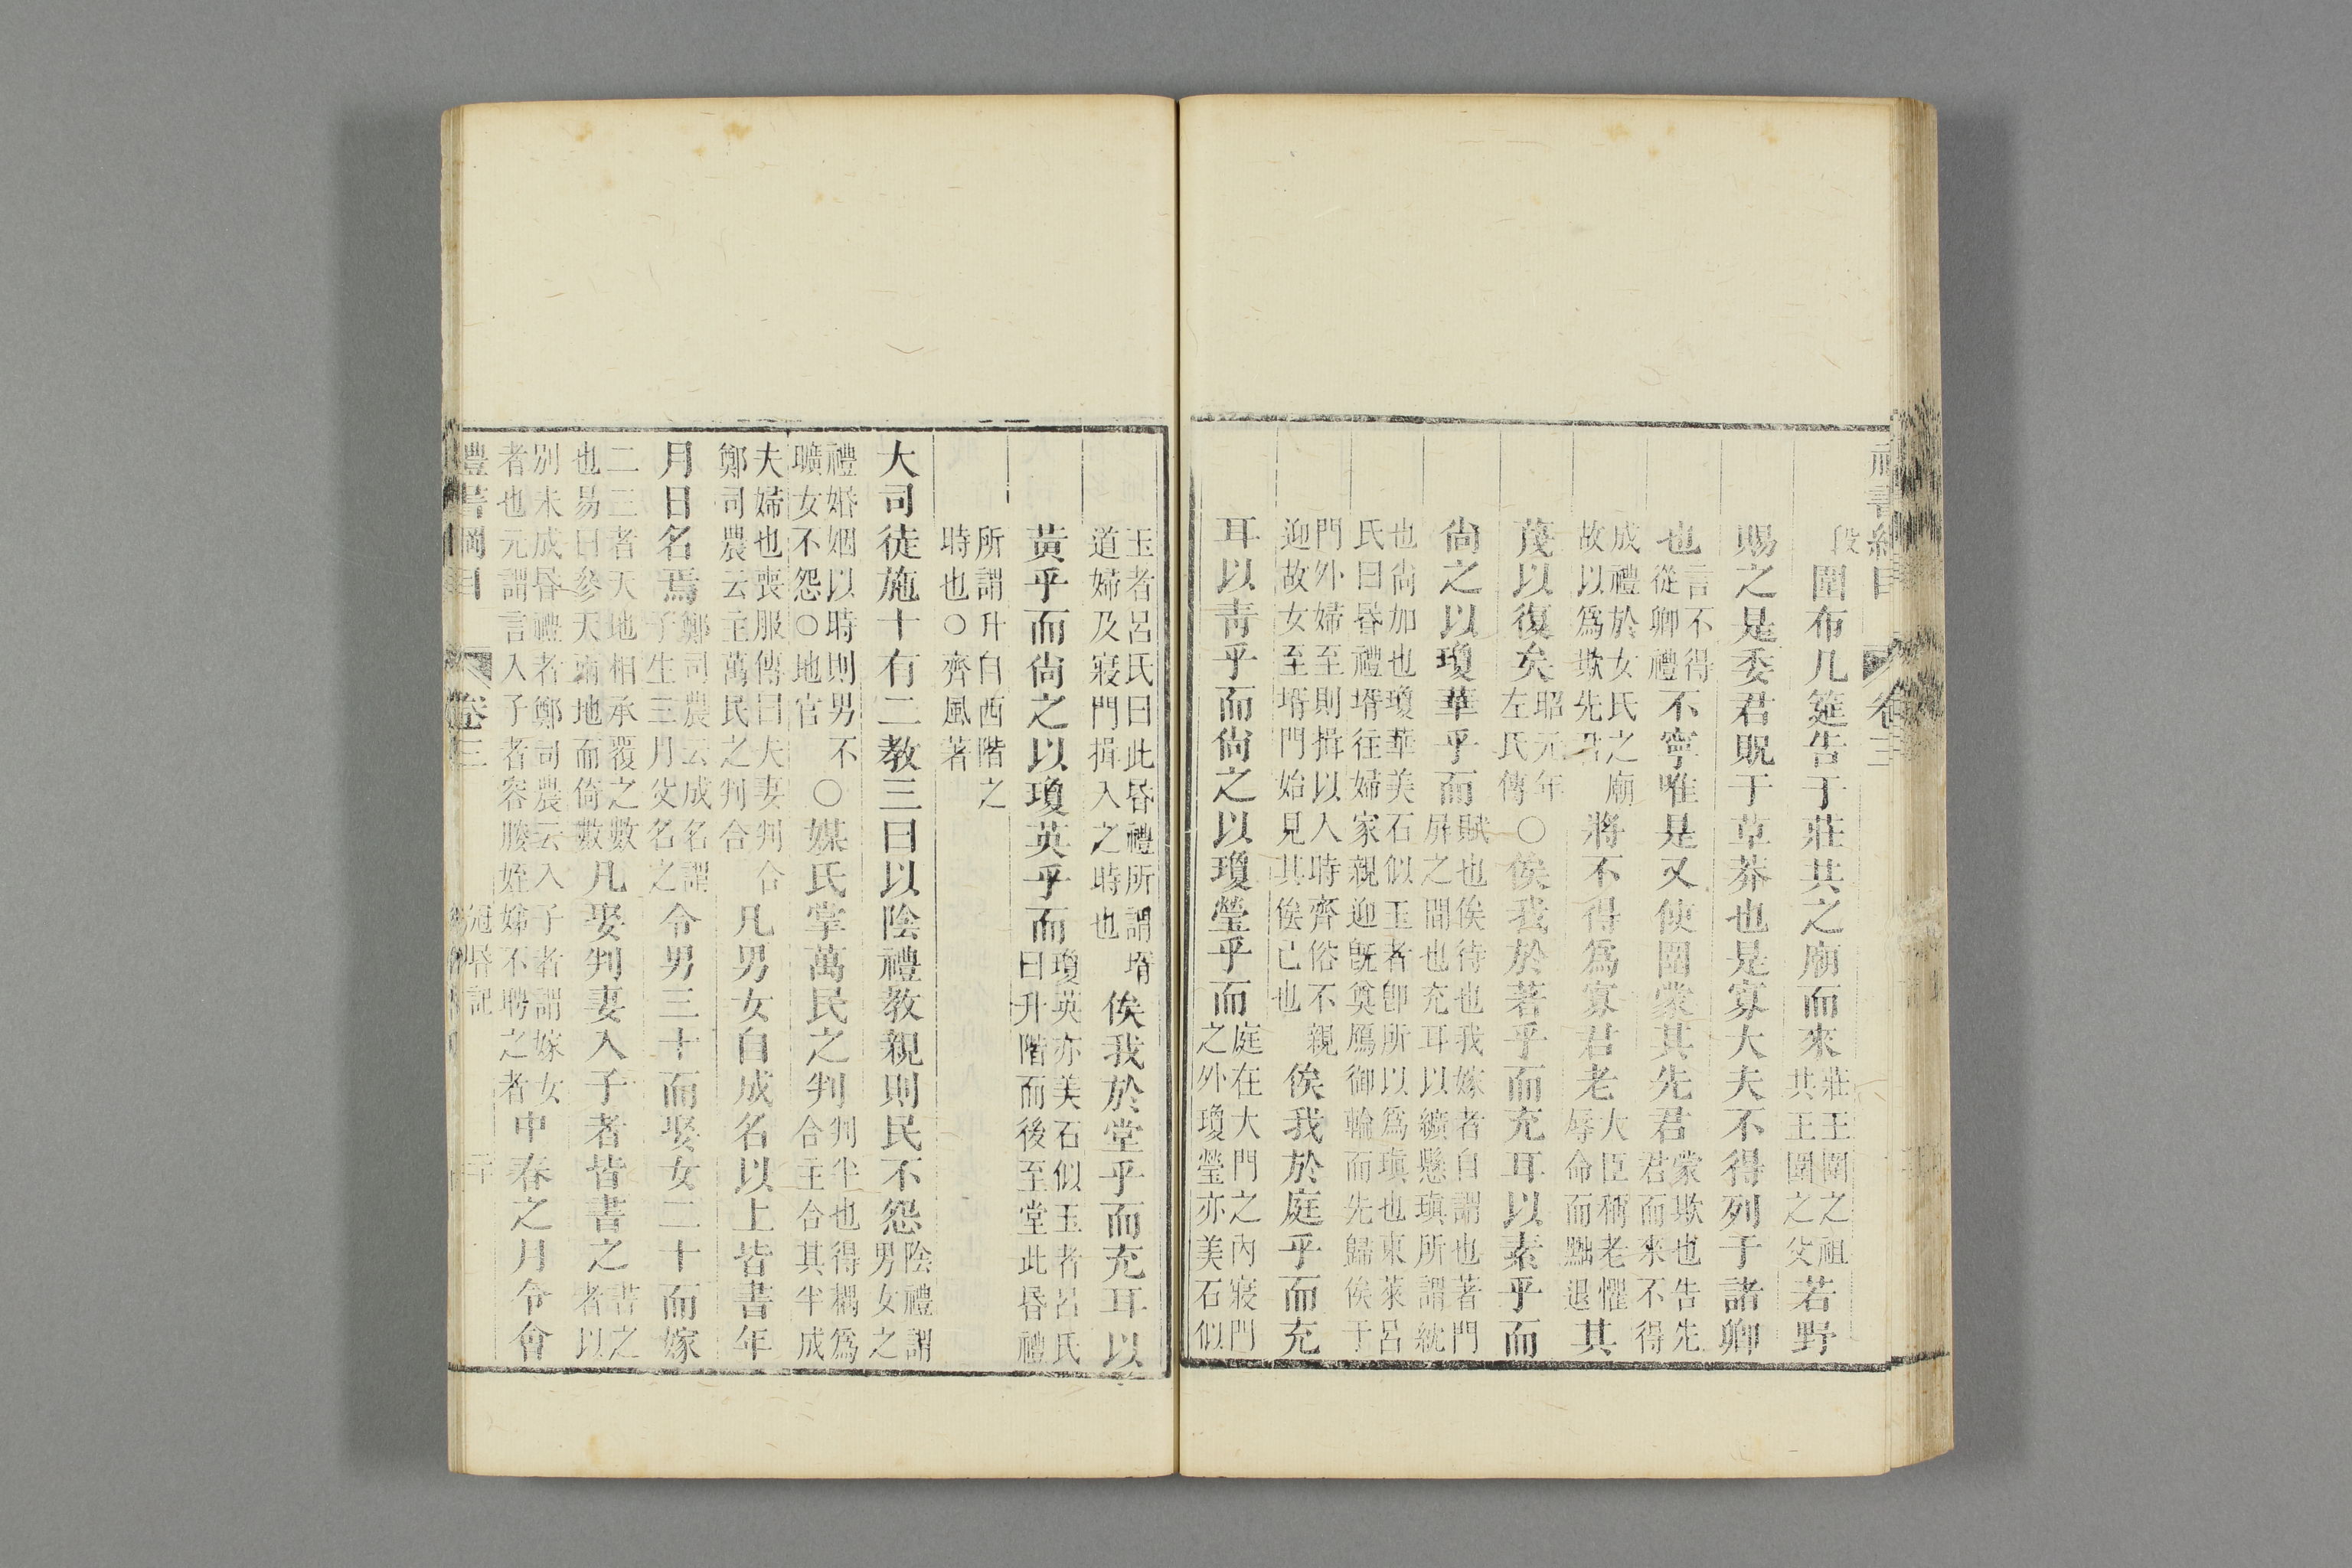 禮書綱目 卷三
段圍布几筵告于莊共之廟而來莊王圍之祖共王圍之父若野
賜之是委君貺于草莽也是寡大夫不得列于諸卿
也言不得從卿禮不寧唯是又使圍蒙其先君蒙欺也告先君而來不得
成禮於女氏之廟故以爲欺先君將不得爲寡君老大臣稱老懼辱命而黜退其
蔑以復矣昭元年左氏傳○俟我於著乎而充耳以素乎而
尙之以瓊華乎而賦也俟待也我嫁者自謂也著門屏之間也充耳以纊懸瑱所謂紞
也尙加也瓊華美石似玉者卽所以爲瑱也東萊呂氏曰昏禮壻往婦家親迎旣奠鴈御輪而先歸俟于
門外婦至則揖以入時齊俗不親迎故女至壻門始見其俟己也俟我於庭乎而充
耳以靑乎而尙之以瓊瑩乎而庭在大門之內寢門之外瓊瑩亦美石似
玉者呂氏曰此昏禮所謂壻道婦及寢門揖入之時也俟我於堂乎而充耳以
黃乎而尙之以瓊英乎而瓊英亦美石似玉者呂氏曰升階而後至堂此昏禮
所謂升自西階之時也○齊風著
大司徒施十有二教三曰以陰禮教親則民不怨陰禮謂男女之
禮婚姻以時則男不曠女不怨○地官○媒氏掌萬民之判判半也得耦爲合主合其半成
夫婦也喪服傳曰夫妻判合鄭司農云主萬民之判合凡男女自成名以上皆書年
月日名焉鄭司農云成名謂子生三月父名之令男三十而娶女二十而嫁
二三者天地相承覆之數也易曰參天兩地而倚數凡娶判妻入子者皆書之書之者以
別未成昏禮者鄭司農云入子者謂嫁女者也元謂言入子者容媵姪娣不聘之者中春之月令會
禮書綱目 卷三 冠昏記 二十